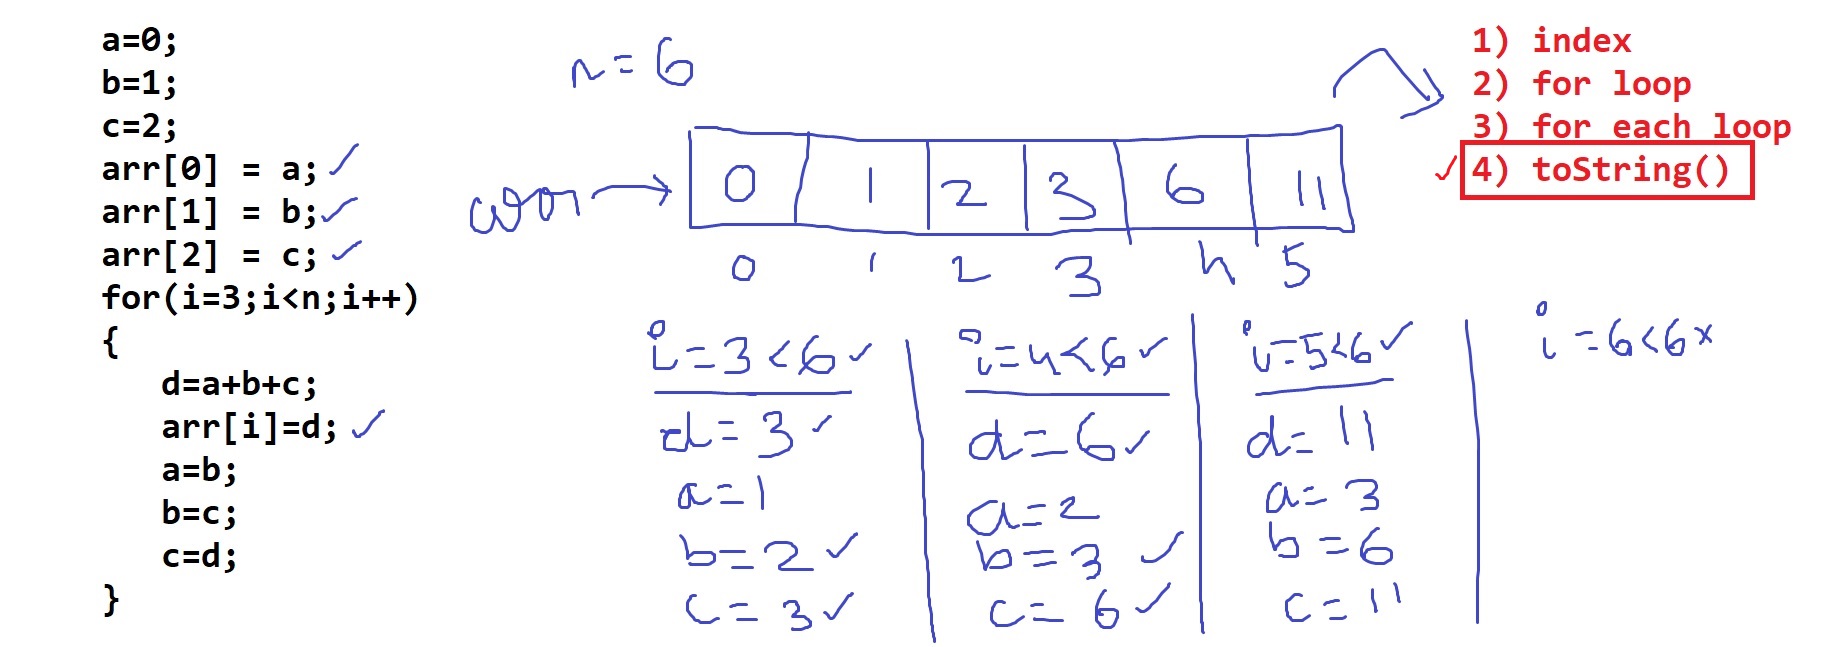 a=0;
b=1;
c=2;
arr[0] = a; ✓
arr[1] = b; ✓
arr[2] = c; ✓
for(i=3;i<n;i++)
{
d=a+b+c;
arr[i]=d; ✓
a=b;
b=c;
c=d;
}
n=6
0 1 2 3 6 11
0 1 2 3 4 5
1) index
2) for loop
3) for each loop
✓ 4) toString()
i=3<6 ✓
d=3 ✓
a=1
b=2 ✓
c=3 ✓
i=4<6 ✓
d=6 ✓
a=2
b=3 ✓
c=6 ✓
i=5<6 ✓
d=11
a=3
b=6
c=11
i=6<6 x